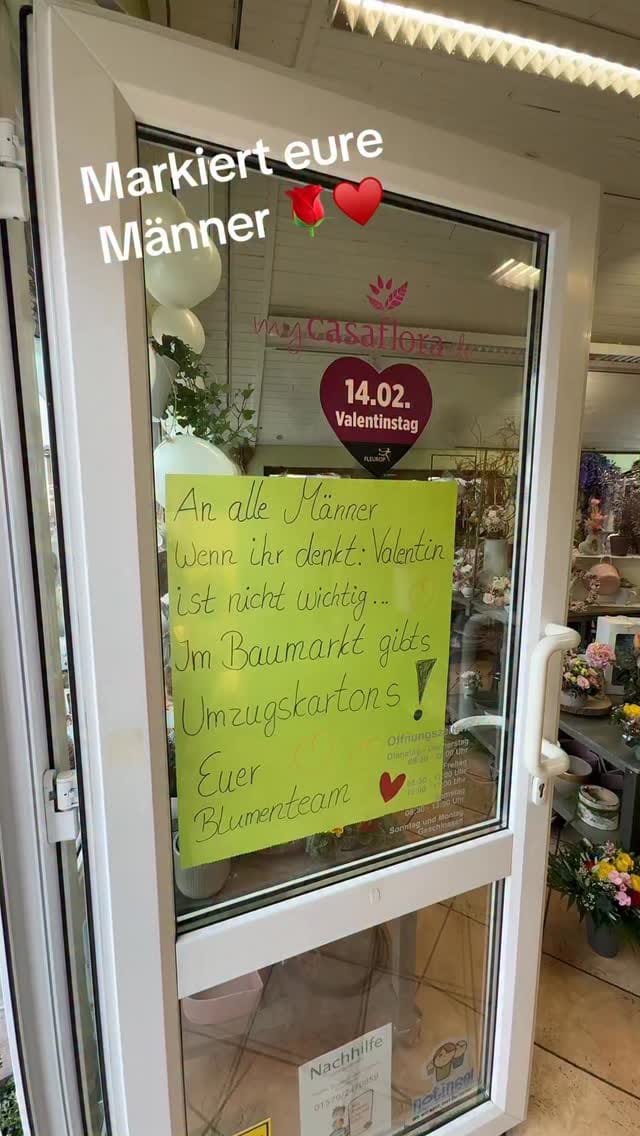 Markiert eure
Männer 🌹♥️
mycasaflora.de
14.02.
Valentinstag
FLEUROP
An alle Männer
Wenn ihr denkt: Valentin
ist nicht wichtig...
Im Baumarkt gibts
Umzugskartons!
Euer
Blumenteam ♥
Öffnungszeiten
Freitag
Samstag
08:30 - 13:00 Uhr
Sonntag und Montag
Geschlossen
Nachhilfe